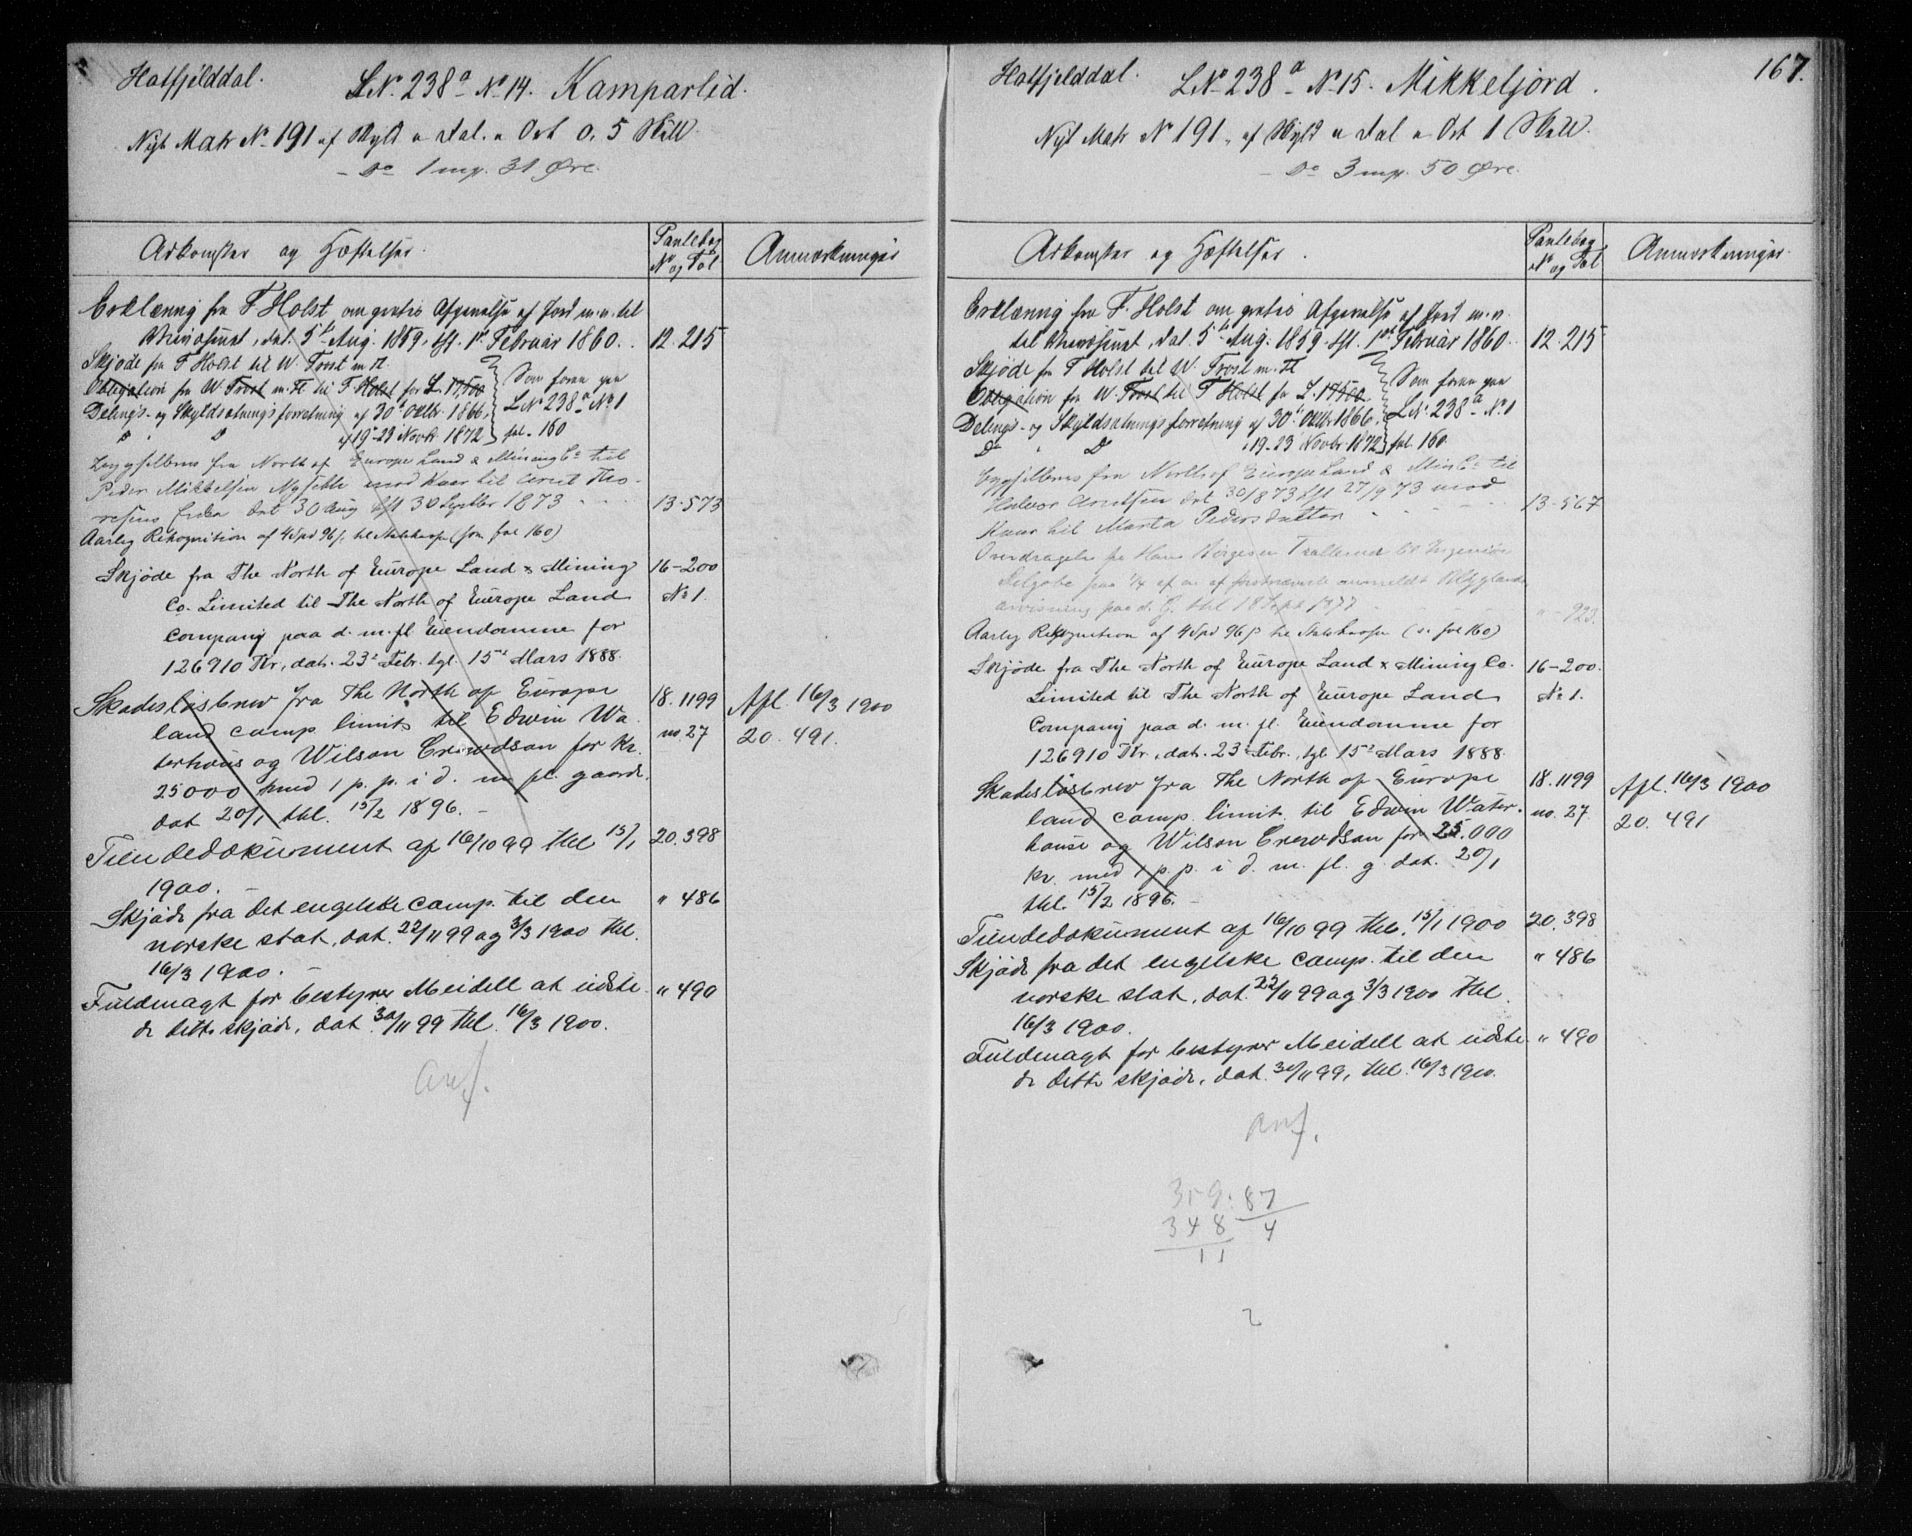 Hatfjelddal. LNo 238a No 14. Kamparlid.
Nyt Matr No 191 af Skyld " Dal. " Ort 0,5 Skill
- Do 1 mp. 31 Øre.
Adkomster og Hæftelser.
Pantebog
No og Fol
Anmærkninger
Erklæring fra F. Holst om gratis Afgivelse af Jord m.v. til
dat. 5te Aug. 1859, tgl. 1st Februar 1860. 12. 215
Skjøde fra F Holst til W. Frost m Fl
Obligation fra W. Frost m. Fl til F Holst for L. 17500
Delings- og Skyldsætningsforretning af 30te Oktbr. 1866,
D " D af 19-23 Novbr. 1872
Som foran paa
LNo 238a No 1
fol. 160
Byggselbrev fra North of Europe Land & Mining Co til
Peder Mikkelsen Nysæth mod Kaar til Arnt Tho-
resens Enke dat 30 Aug tgl 30 Septbr 1873 13-573
Aarlig Rekognition af 4 Spd 96 s. til Statskassen (som fol 160)
Skjøde fra The North of Europe Land & Mining 16-200
Co. Limited til The North of Europe Land No 1.
Company paa d. m. fl Eiendomme for
126910 Kr., dat. 23de Febr. tgl. 15de Mars 1888.
Skadesløsbrev fra The North of Europe 18. 1199 Afl. 16/3 1900
land comp. limit. til Edwin Wa- no. 27 20. 491.
terhous og Wilson Crewdson for kr.
25000 med 1 p. p. i d. m. fl. gaarde.
dat 20/1 thl. 15/2 1896. -
Tiendedokument af 16/10 99 thl 15/1 20. 398
1900.
Skjøde fra det engelske comp. til den " 486
norske stat, dat. 22/11 99 og 3/3 1900 thl.
16/3 1900.
Fuldmagt for bestyrer Meidell at udste- " 490
de dette skjøde, dat. 30/11 99 thl. 16/3 1900.
Anf.
167.
Hatfjelddal. LNo 238a No 15. Mikkeljord.
Nyt Matr No 191, af Skyld " Dal " Ort 1 Skill.
- Do 3 mp. 50 Øre.
Adkomster og Hæftelser.
Pantebog
No og Fol
Anmærkninger.
Erklæring fra F. Holst om gratis Afgivelse af Jord m. v.
til dat 5te Aug. 1859. tgl. 1ste Februar 1860. 12. 215
Skjøde fra F Holst til W. Frost m. Fl
Obligation fra W. Frost til F Holst for L. 17500.
Delings- og Skyldsætningsforretning af 30te Oktbr. 1866.
Do " D " 19-23 Novbr. 1872
Som foran paa
LNo 238a No 1
fol. 160.
Byggselbrev fra North of Europe Land & Min Co til
Halvor Arntsen dat 30/8 73 tgl 27/9 73 mod 13-567
Kaar til Marta Pedersdatter
Overdragelse fra Hans Børgesen Trallerud til Ingeniør
paa 1/4 af en af førstnævnte anmeldt
anvisning paa d. G. thl 18 Sept 1877 " - 923.
Aarlig Rekognition af 4 Spd 96 s til Statskassen (s. fol 160)
Skjøde fra The North of Europe Land & Mining Co. 16-200.
Limited til The North of Europe Land No 1.
Company paa d. m. fl. Eiendomme for
126910 Kr., dat. 23de Febr., tgl 15de Mars 1888.
Skadesløsbrev fra The North of Europe 18. 1199 Afl. 16/3 1900
land comp. limit. til Edwin Water- no. 27 20. 491
house og Wilson Crewdson for 25.000
kr. med 1 p. p. i d. m. fl. g. dat. 20/1
thl. 15/2 1896. -
Tiendedokument af 16/10 99 thl. 15/1 1900 20. 398
Skjøde fra det engelske comp. til den " 486
norske stat, dat. 22/11 99 og 3/3 1900 thl.
16/3 1900.
Fuldmagt for bestyrer Meidell at udste- " 490
de dette skjøde, dat. 30/11 99, thl. 16/3 1900.
Anf.
359 : 87
348 4
11
2